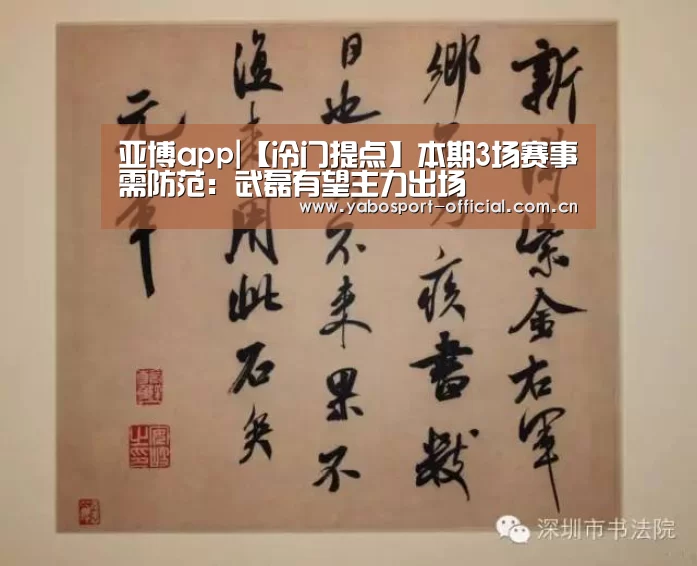 亚博app|【冷门提点】本期3场赛事
需防范：武磊有望主力出场
www.yabosport-official.com.cn
新得紫金右軍
鄉石力疾書數
日也吾不来果不
復来用此石矣
元章
深圳市书法院